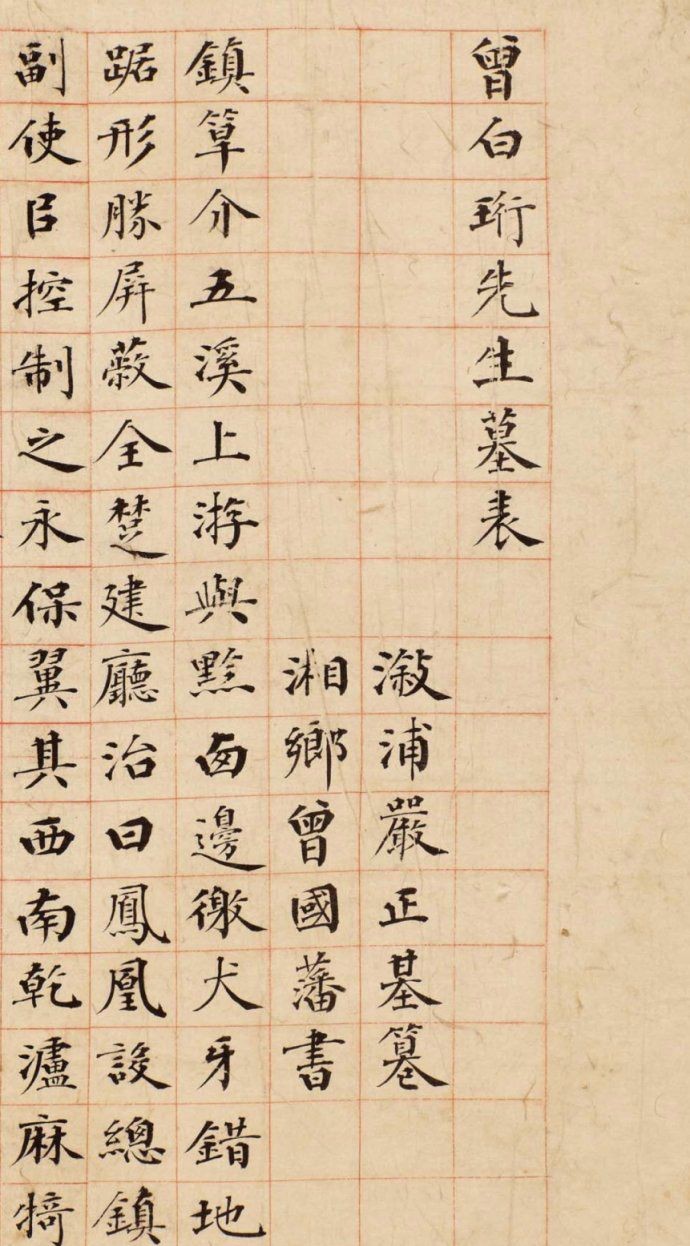 曾白珩先生墓表
溆浦嚴正基篹
湘鄉曾國藩書
鎮筸介五溪上游與黔西邊徼犬牙錯地
踞形勝屏蔽全楚建廳治曰鳳凰設總鎮
副使㠯控制之永保翼其西南乾瀘麻犄